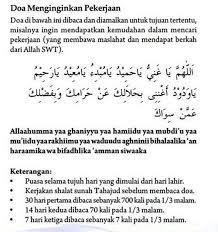 Doa Menginginkan Pekerjaan
Doa di bawah ini dibaca dan diamalkan untuk tujuan tertentu,
misalnya ingin mendapatkan kemudahan dalam mencari
pekerjaan (yang membawa maslahat dan mendapat berkah
dari Allah SWT).
اَللّٰهُمَّ يَا غَنِيُّ يَاحَمِيْدُ يَامُبْدِءُ يَامُعِيْدُ يَارَحِيْمُ
يَاوَدُوْدُ اَغْنِنِى بِحَلَالِكَ عَنْ حَرَامِكَ وَبِفَضْلِكَ
عَمَّنْ سِوَاكَ
Allaahumma yaa ghaniyyu yaa hamiidu yaa mubdi'u yaa
mu'iidu yaa rakhiimu yaa waduudu aghninii bihalaalika 'an
haraamika wa bifadhlika 'amman siwaaka
Keterangan:
• Puasa selama tujuh hari yang dimulai dari hari lahir.
• Kerjakan shalat sunah Tahajud sebelum membaca doa.
• 30 hari pertama dibaca sebanyak 700 kali pada 1/3 malam.
• 14 hari kedua dibaca 70 kali pada 1/3 malam.
• 7 hari ketiga dibaca sebanyak 7 kali pada 1/3 malam.